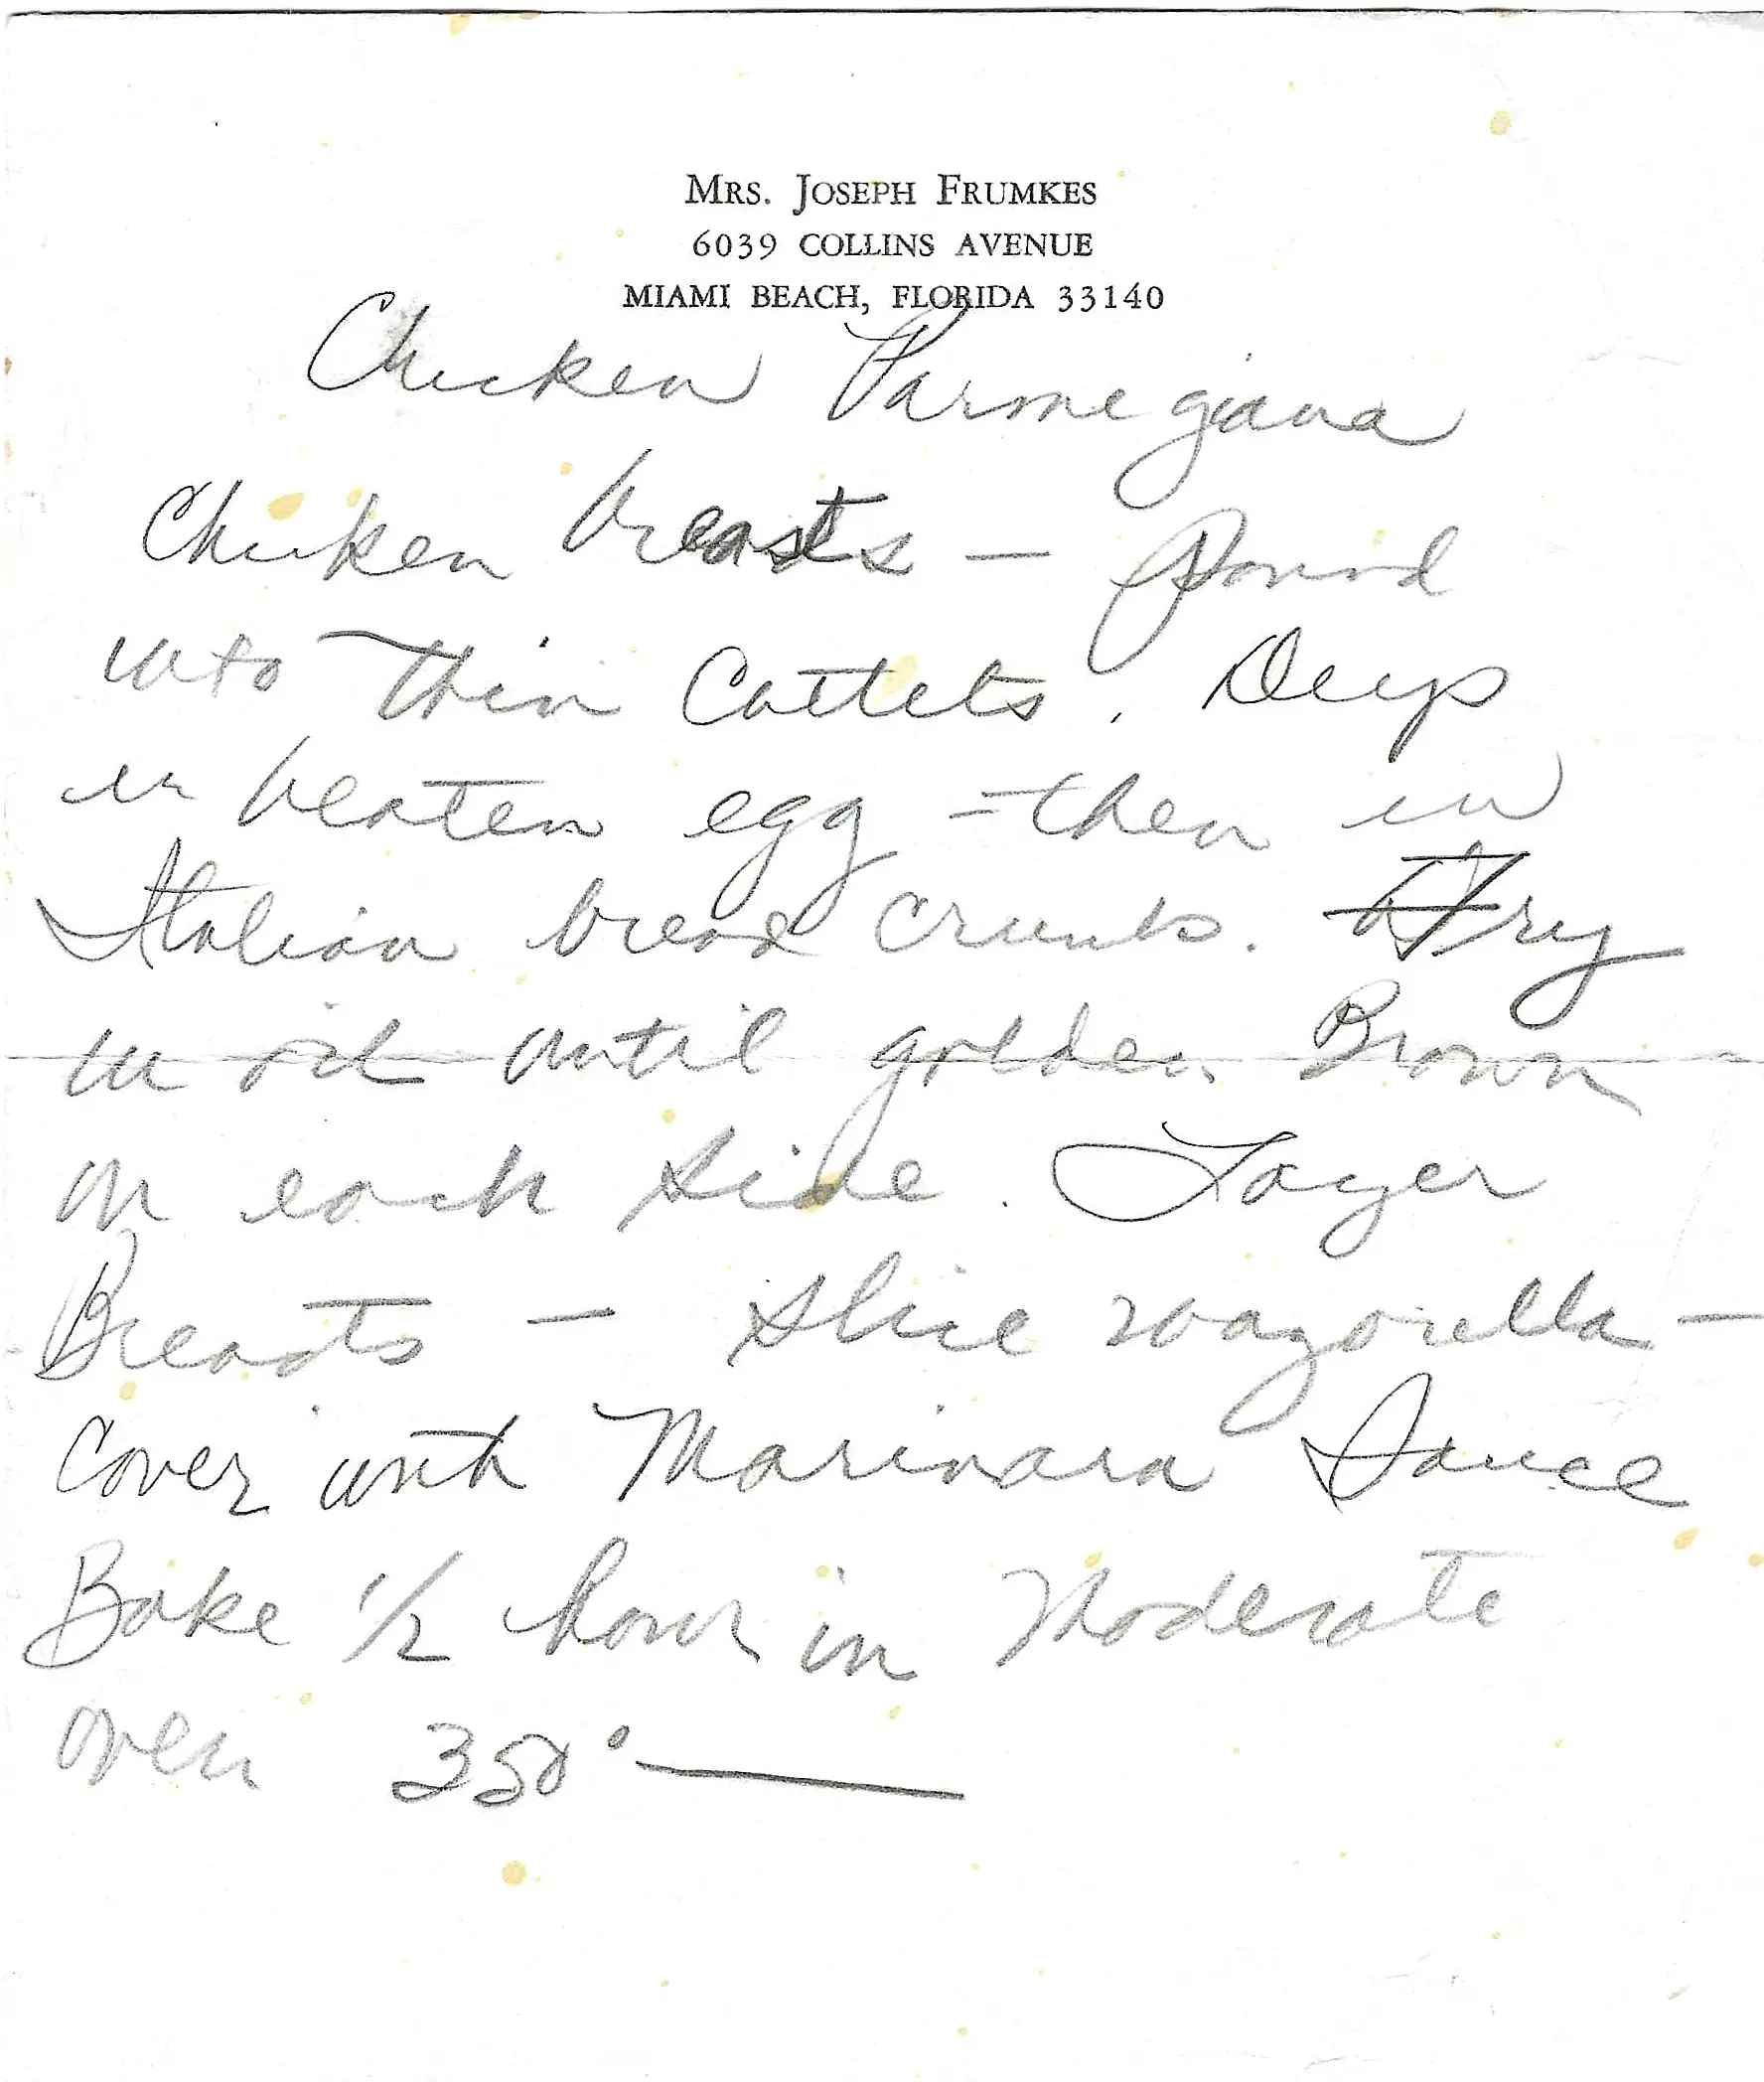 MRS. JOSEPH FRUMKES
6039 COLLINS AVENUE
MIAMI BEACH, FLORIDA 33140
Chicken Parmegiana
Chicken breasts — Pound
into thin Cuttlets. Dip
in beaten egg - then in
Italian bread crumbs. Fry
in oil until golden Brown
on each side. Layer
Breasts — slice mozorella —
cover with Marinara Sauce
Bake 1/2 hour in Moderate
oven 350° —